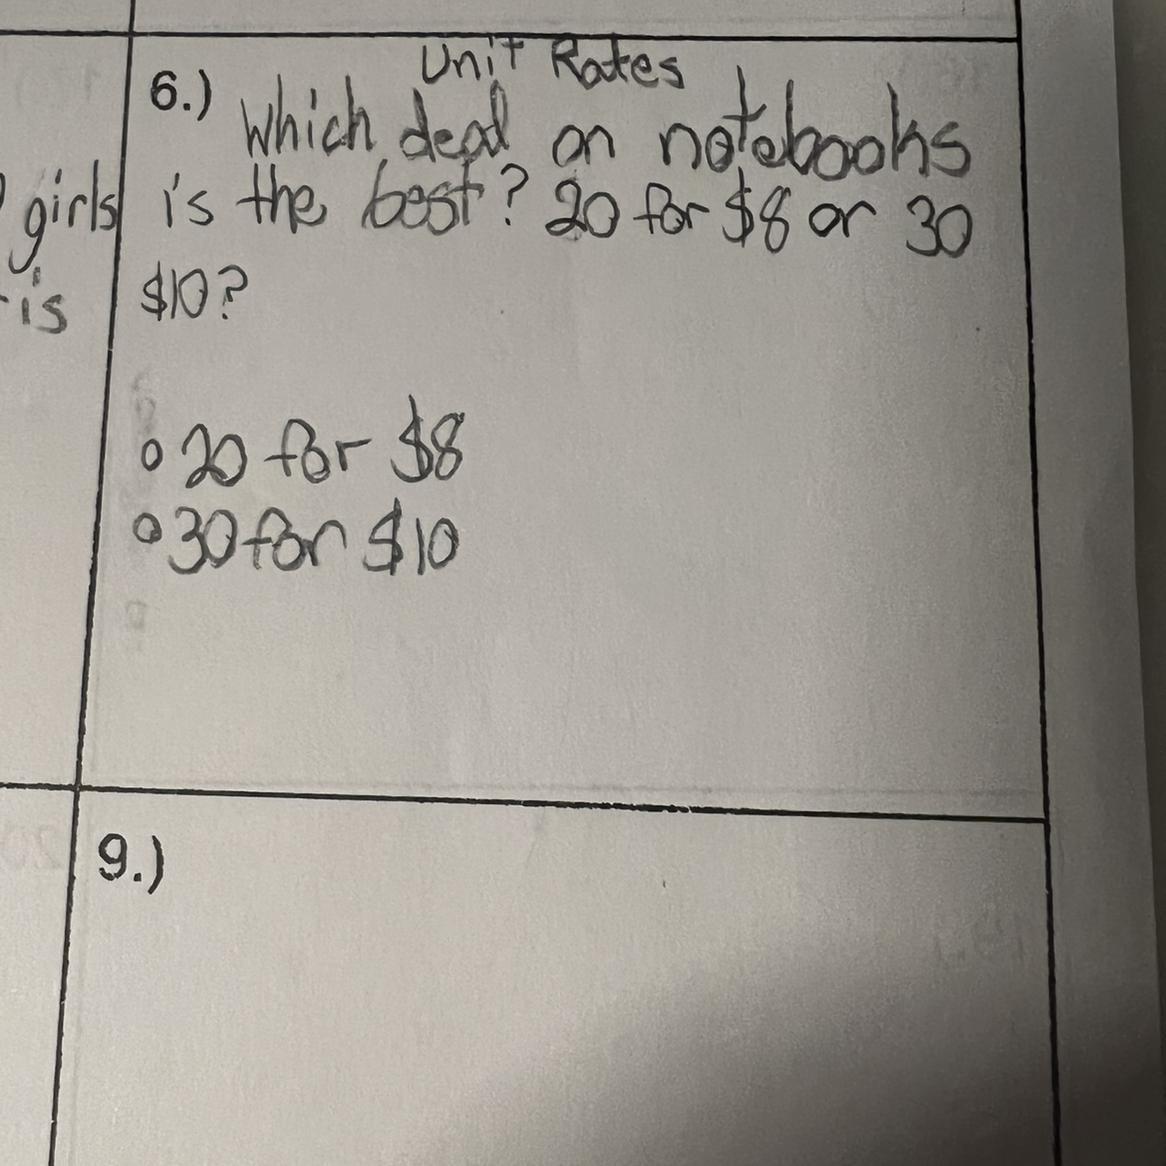 Unit Rates
6.) Which deal on notebooks
girls is the best? 20 for $8 or 30
is $10?
20 for $8
30 for $10
9.)